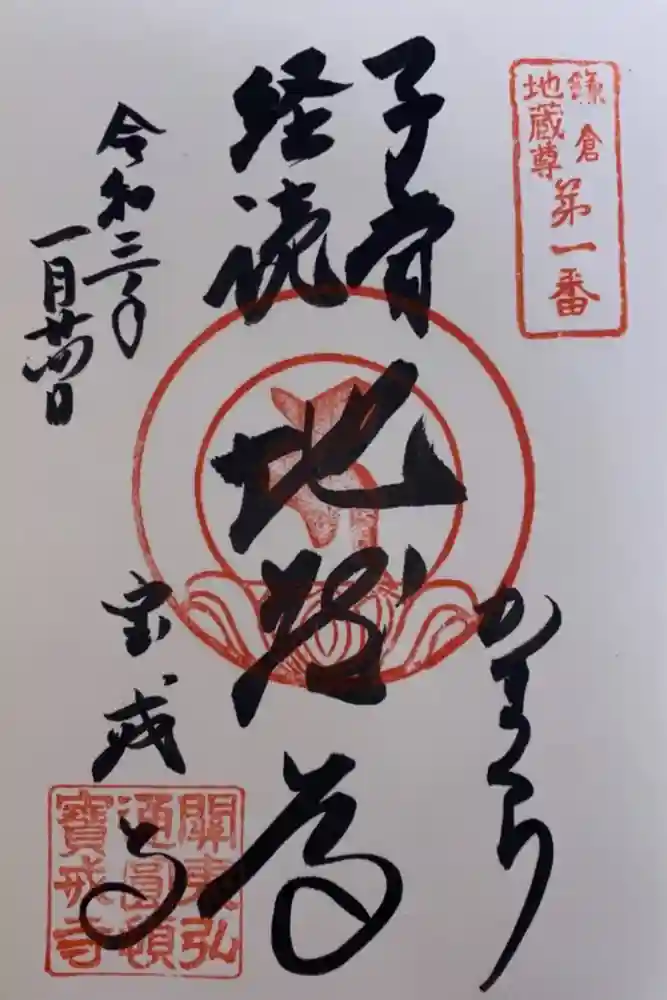 鎌倉
地蔵尊
第一番
かまくら
子育
経読
地蔵尊
令和三年
一月廿四日
宝戒寺
關東弘
通圓頓
寶戒寺